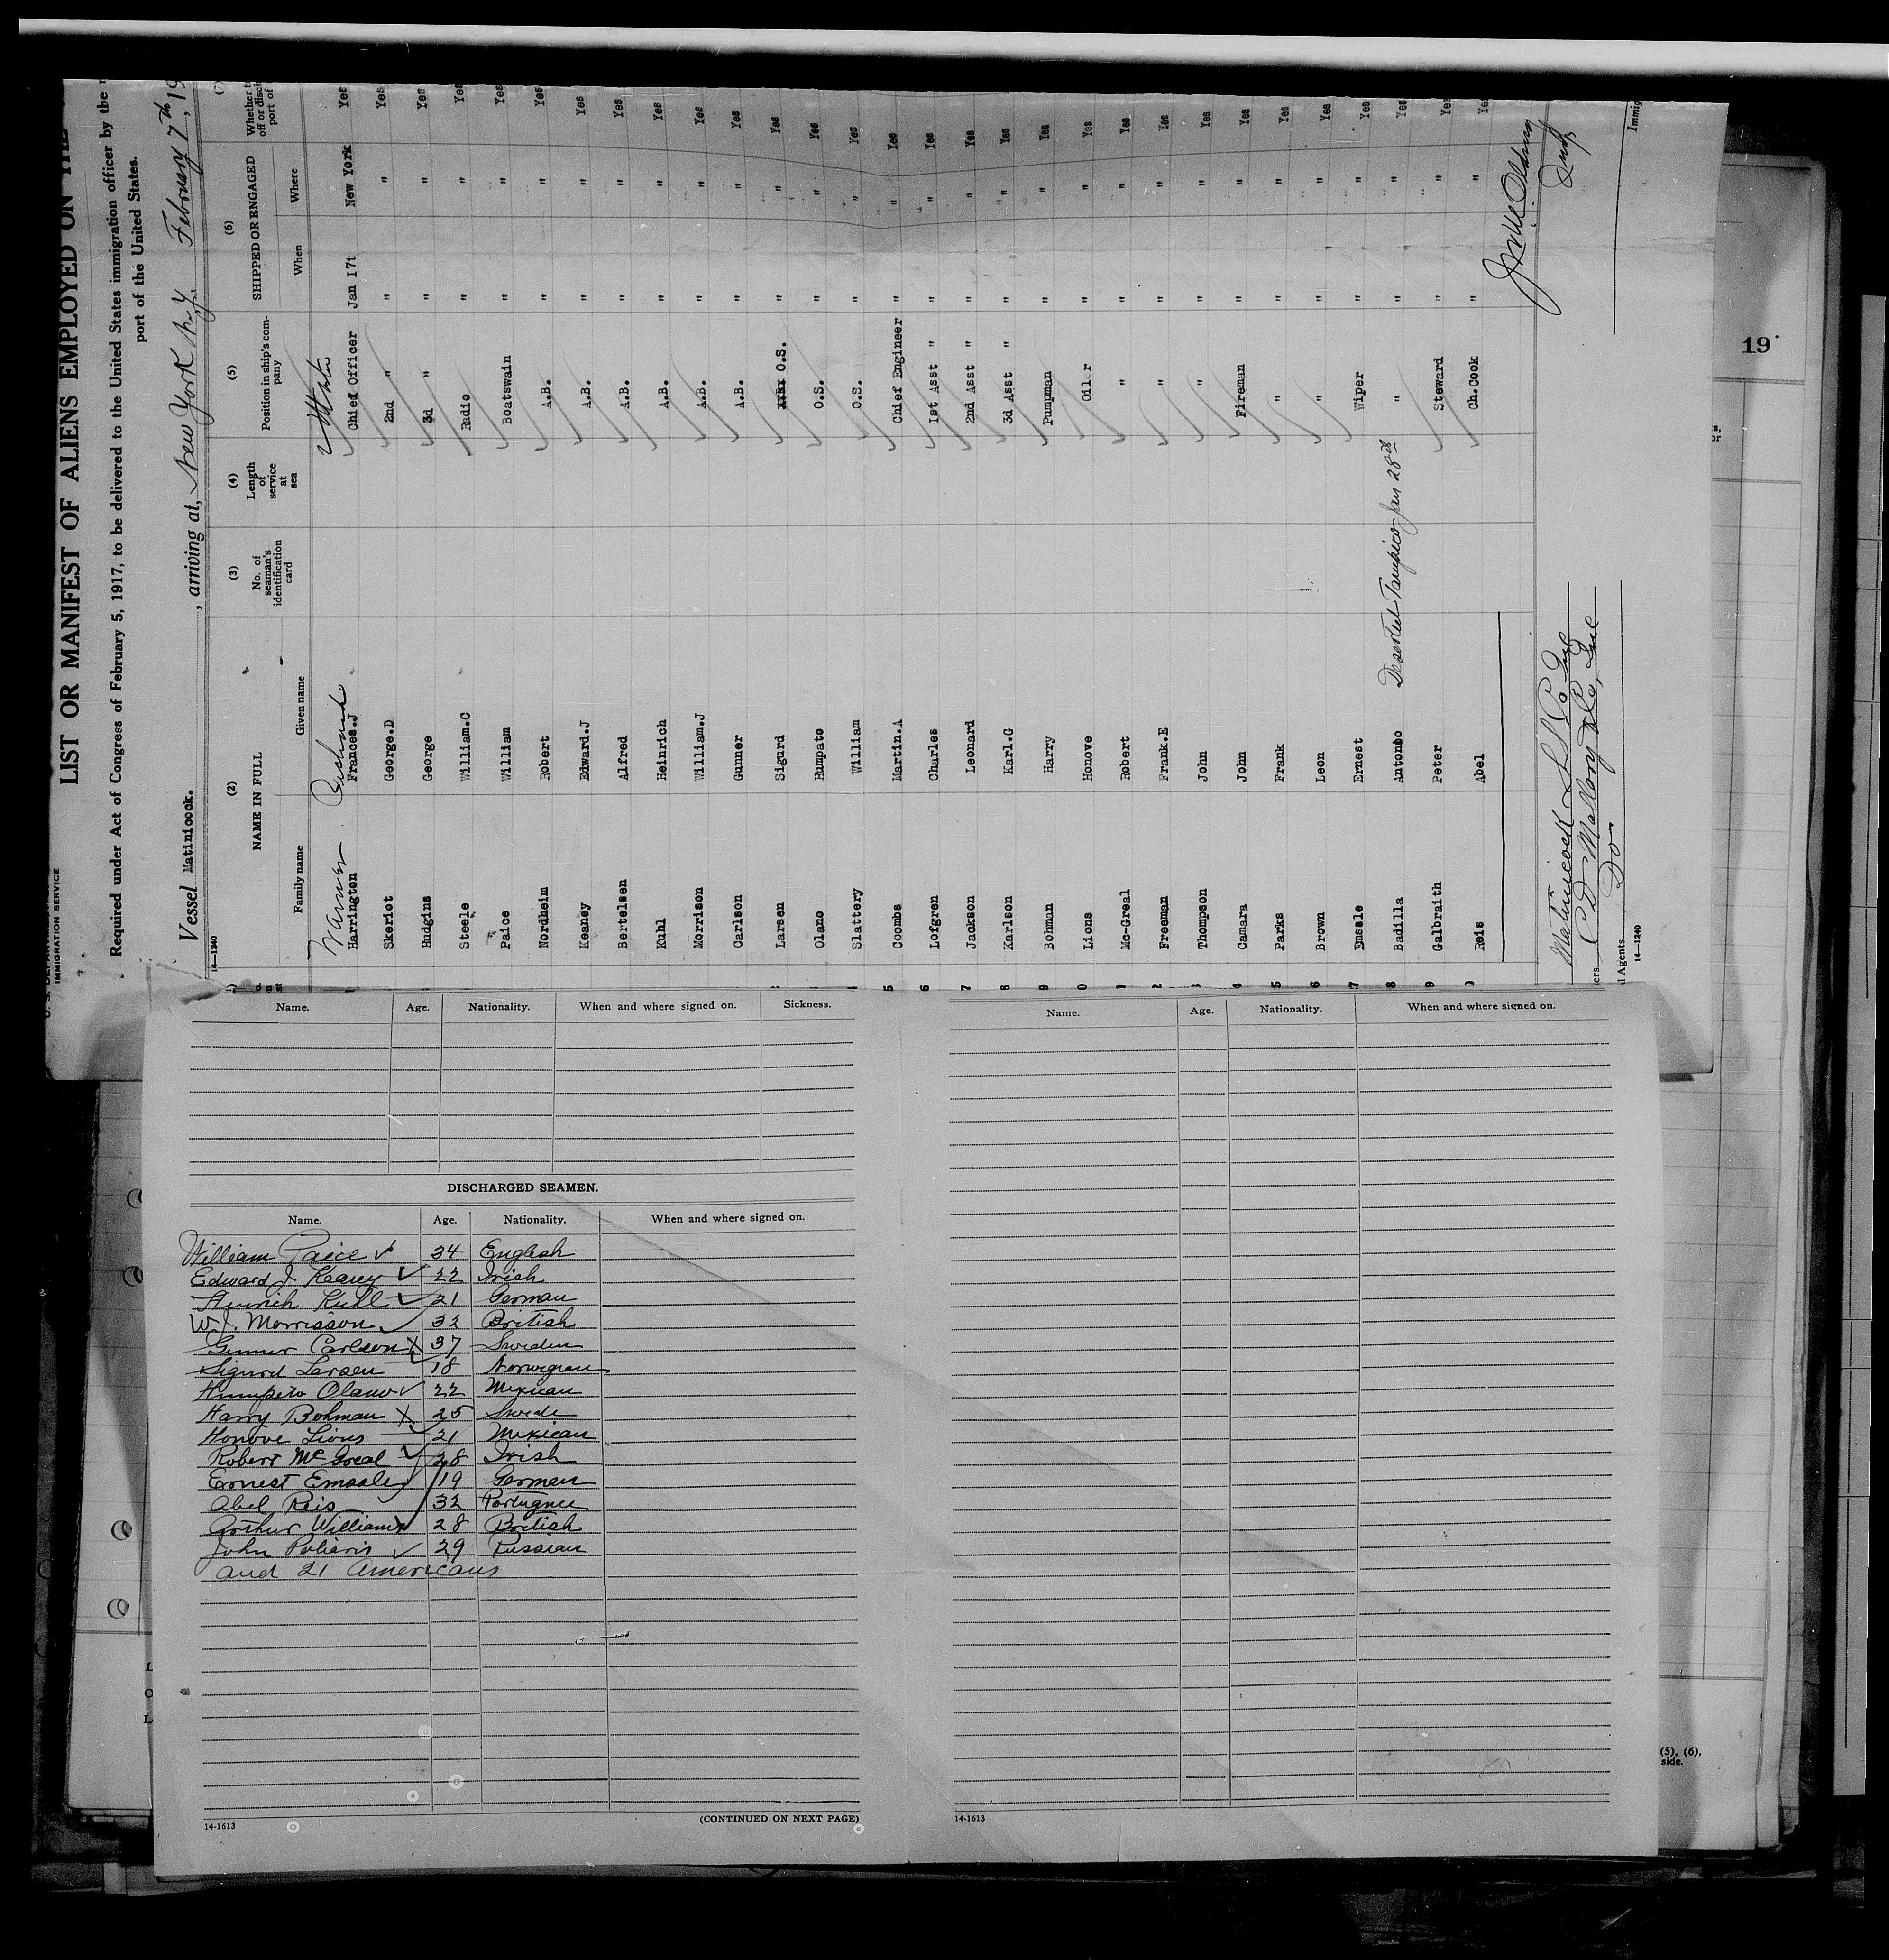 LIST OR MANIFEST OF ALIENS EMPLOYED ON THE
Required under Act of Congress of February 5, 1917, to be delivered to the United States immigration officer by the
port of the United States.
IMMIGRATION SERVICE
Vessel Matinicock. , arriving at, New York N.Y. February 7th, 19
14—1240
(2) (3) (4) (5) (6)
NAME IN FULL No. of seaman's identification card Length of service at sea Position in ship's company SHIPPED OR ENGAGED
Family name Given name When Where
Warner Richard
Harrington Frances.J Chief Officer Jan 17t New York Yes
Skeriot George.D 2nd " " " Yes
Hudgins George 3d " " " Yes
Steele William.C Radio " " Yes
Paice William Boatswain " " Yes
Nordheim Robert A.B. " " Yes
Keaney Edward.J A.B. " " Yes
Bertelsen Alfred A.B. " " Yes
Kuhl Heinrich A.B. " " Yes
Morrison William.J A.B. " " Yes
Carlson Gunner A.B. " " Yes
Larsen Sigurd O.S. " " Yes
Olano Humpato O.S. " " Yes
Slattery William O.S. " " Yes
5 Coombs Martin.A Chief Engineer " " Yes
6 Lofgren Charles 1st Asst " " " Yes
7 Jackson Leonard 2nd Asst " " " Yes
8 Karlson Karl.G 3d Asst " " " Yes
9 Bohman Harry Pumpman " " Yes
0 Lions Honove Oiler " " Yes
1 Mc-Greal Robert " " " Yes
2 Freeman Frank.E " " " Yes
3 Thompson John " " " Yes
4 Camara John Fireman " " Yes
5 Parks Frank " " " Yes
6 Brown Leon " " " Yes
7 Emsale Ernest Wiper " " Yes
8 Badilla Antonio Deserted Tampico Jan 28th " " " Yes
9 Galbraith Peter Steward " " Yes
0 Reis Abel Ch.Cook " " Yes
Matinicock S S Co Inc
C D Mallory & Co, Inc
Do
Agents
14—1240
Immig
19
Name. Age. Nationality. When and where signed on. Sickness.
DISCHARGED SEAMEN.
Name. Age. Nationality. When and where signed on.
William Paice 34 English
Edward J Keaney 22 Irish
Heinrih Kuhl 21 German
W.J. Morrisson 32 British
Gunner Carlson 37 Sweden
Sigurd Larsen 18 Norwegian
Humpeto Olano 22 Mexican
Harry Bohman 25 Swede
Honove Lions 21 Mexican
Robert McGreal 28 Irish
Ernest Emsale 19 German
Abel Reis 32 Portuguee
Arthur Williams 28 British
John Poliaris 29 Russian
and 21 Americans
14-1613 (CONTINUED ON NEXT PAGE)
Name. Age. Nationality. When and where signed on.
14-1613
(5), (6),
side.